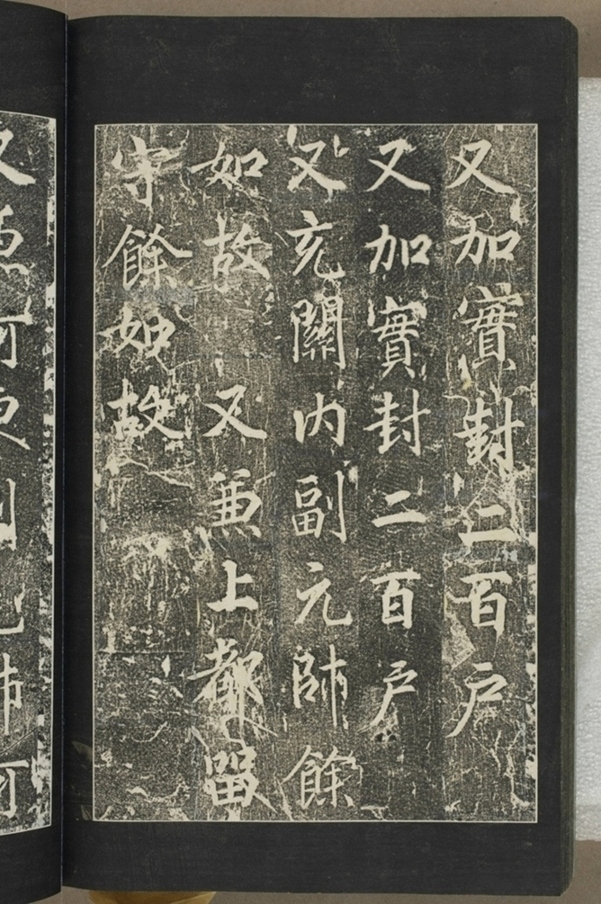 又加實封二百戶
又加實封二百戶
又充關內副元帥餘
如故　又兼上都留
守餘如故
又兼河東副元帥河